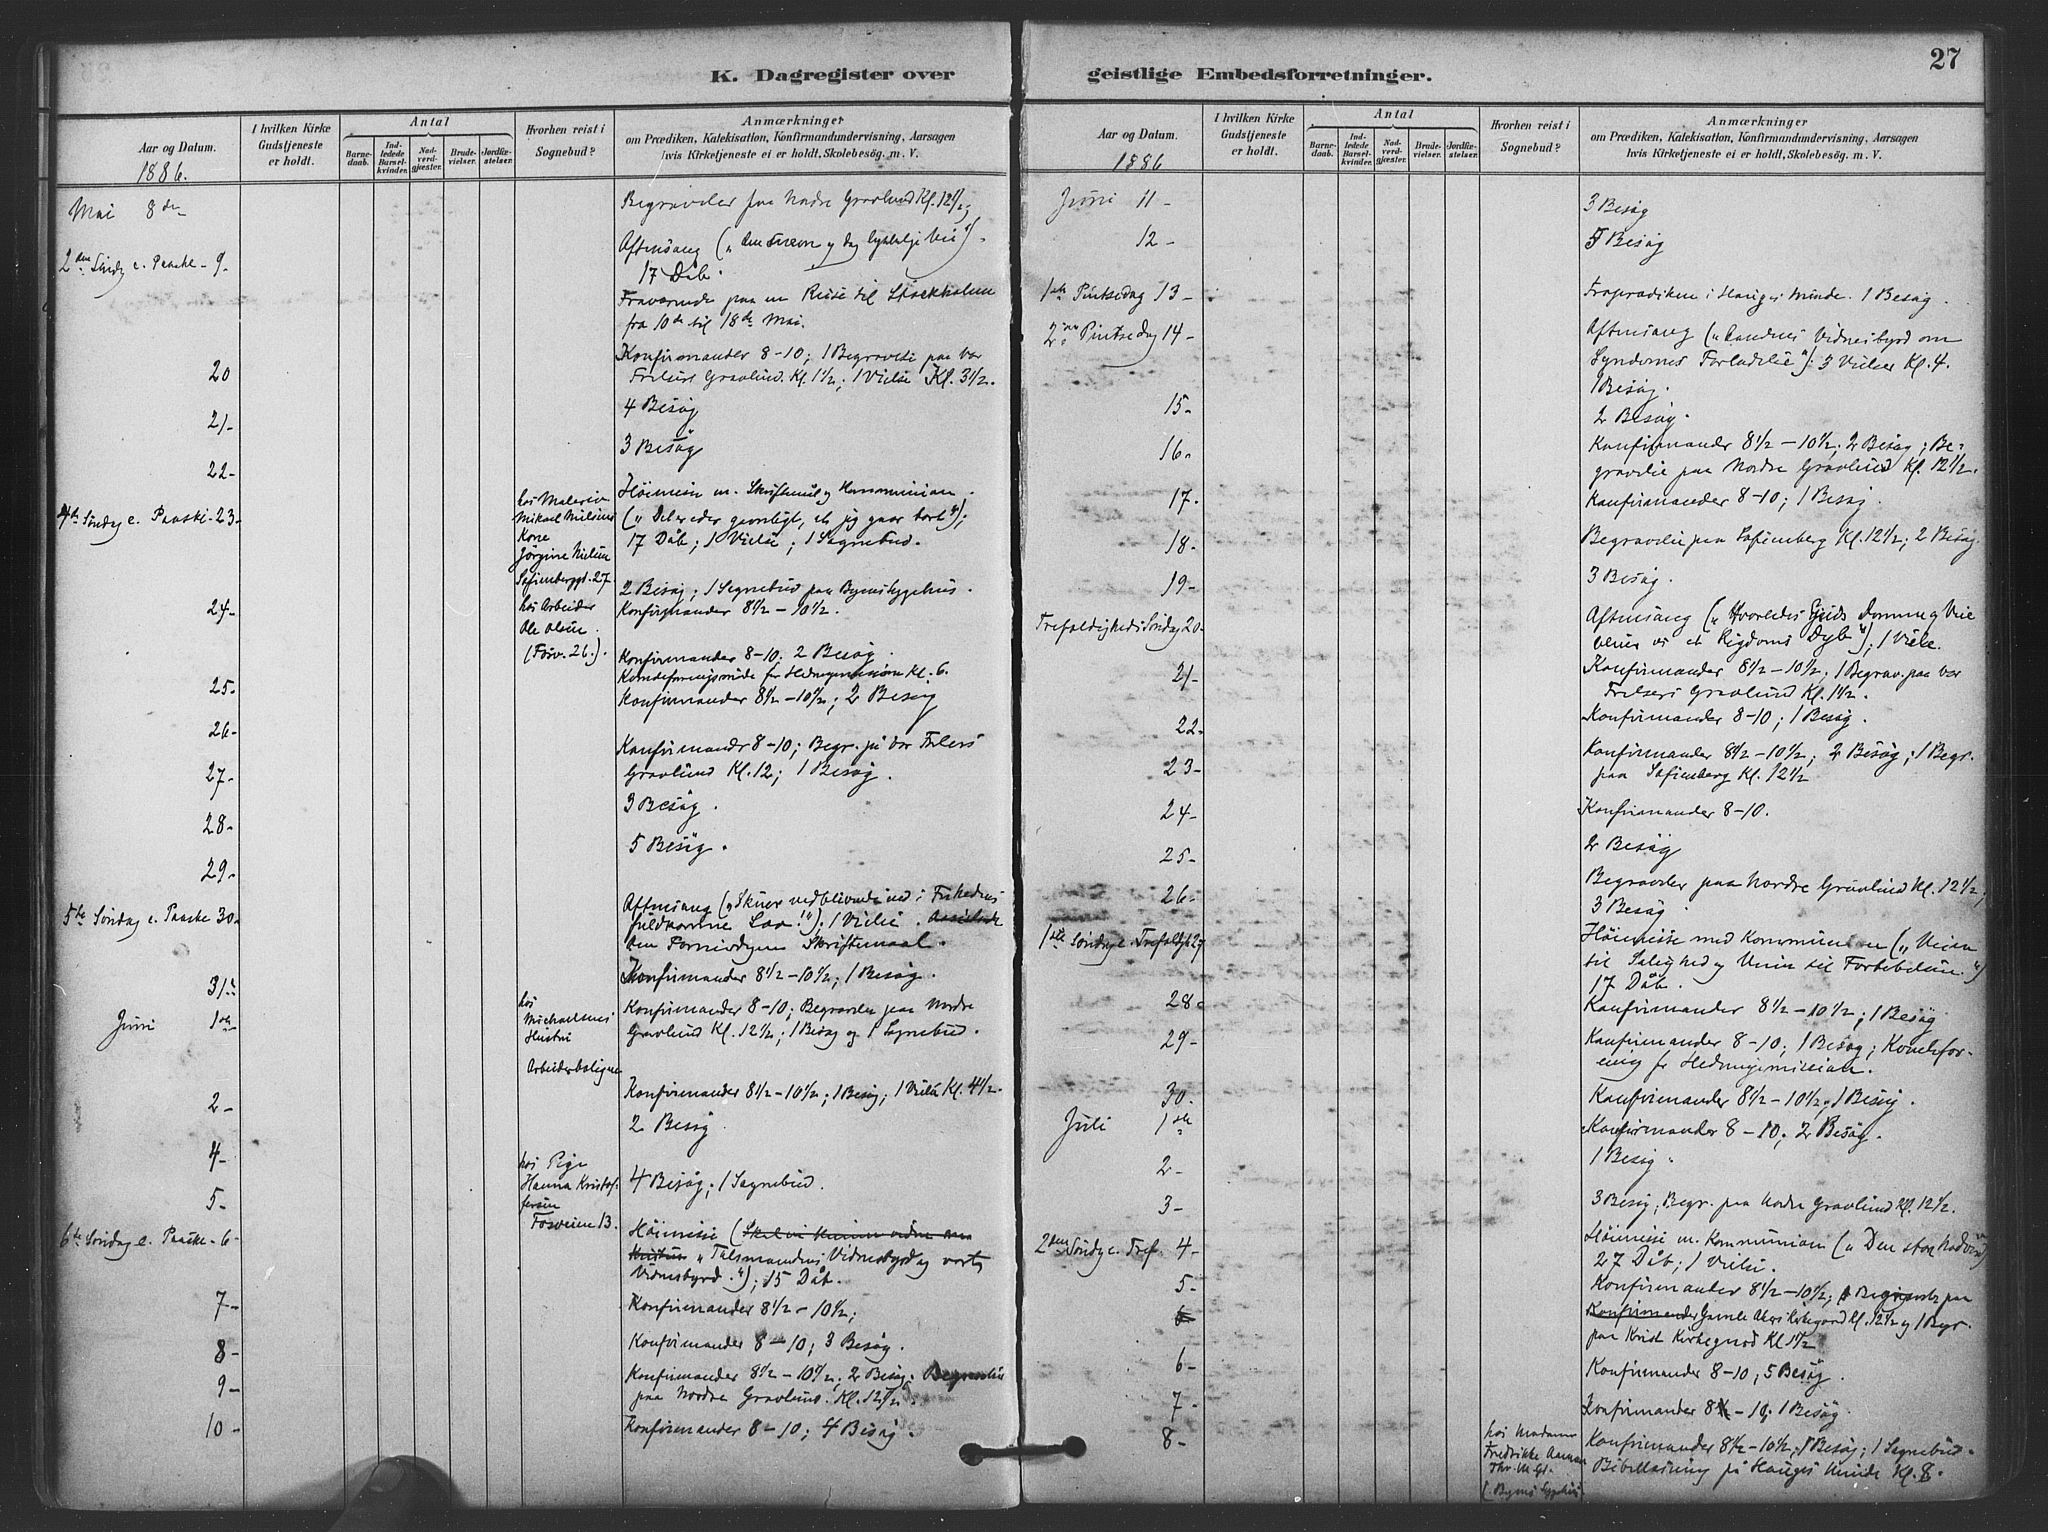 27
K. Dagregister over
geistlige Embedsforretninger.
Aar og Datum.
1886.
I hvilken Kirke
Gudstjeneste
er holdt.
Antal
Barne-
daab.
Ind-
ledede
Barsel-
kvinder.
Nad-
verd-
gjester.
Brude-
vielser.
Jordfæ-
stelser.
Hvorhen reist i
Sognebud?
Anmærkninger
om Prædiken, Katekisation, Konfirmandundervisning, Aarsagen
hvis Kirketjeneste ei er holdt, Skolebesög. m. V.
Mai 8de
Begravelser paa Nordre Gravlund Kl. 12½
2den Söndg e. Paaske - 9-
Aftensang
17 Dåb.
Fraværende paa en Reise til Stockholm
fra 10de til 18de Mai.
20
Konfirmander 8-10; 1 Begravelse paa Vor
Frelsers Gravlund. Kl. 1½; 1 Vielse Kl. 3½.
21-
4 Besög
22-
3 Besög
4de Söndag e. Paaske - 23-
hos
Mikael Nielsens
Kone
Jörgine Nielsen
Sofienberggt. 27
Höimesse m. Skriftemål og Kommunion.
("Det er eder gavnligt, at jeg gaar bort");
17 Dåb; 1 Vielse; 1 Sognebud.
24-
hos Arbeider
Ole Olsen
(Fosv. 26.).
2 Besög; 1 Sognebud paa Byens Sygehus.
Konfirmander 8½-10½.
25-
Konfirmander 8-10. 2 Besög.
Kvindeforeningsmöde for Hedningemission Kl. 6.
26-
Konfirmander 8½-10½; 2 Besög
27-
Konfirmander 8-10; Begr. på Vor Frelsers
Gravlund Kl. 12; 1 Besög.
28-
3 Besög.
29-
5 Besög.
5te Söndag e. Paaske 30-
Aftensang ("Skuer vedblivende ind i Frihedens
fuldkomne Lov!"); 1 Vielse.
Skriftemaal.
31te
Konfirmander 8½-10½; 1 Besög.
Juni 1ste
hos
Michaelsens
Hustru
Arbeiderboligne
Konfirmander 8-10; Begravelse paa Nordre
Gravlund Kl. 12½; 1 Besög og 1 Sognebud.
2-
Konfirmander 8½-10½; 1 Besög; 1 Vielse Kl. 4½.
4-
2 Besög.
5-
hos Pige
Hanna Kristof-
fersen
Fosveien 13.
4 Besög; 1 Sognebud.
6te Söndag e. Paaske - 6-
Höimesse
"Talsmandens Vidnesbyrd og vort
Vidnesbyrd."); 15 Dåb.
7-
Konfirmander 8½-10½;
8-
Konfirmander 8-10; 3 Besög.
9-
Konfirmander 8½-10½; 2 Besög. Begravelse
paa Nordre Gravlund. Kl. 12½.
10-
Konfirmander 8-10; 4 Besög.
Aar og Datum.
1886
I hvilken Kirke
Gudstjeneste
er holdt.
Antal
Barne-
daab.
Ind-
ledede
Barsel-
kvinder.
Nad-
verd-
gjester.
Brude-
vielser.
Jordfæ-
stelser.
Hvorhen reist i
Sognebud?
Anmærkninger
om Prædiken, Katekisation, Konfirmandundervisning, Aarsagen
hvis Kirketjeneste ei er holdt, Skolebesög. m. V.
Juni 11-
3 Besög
12-
5 Besög
1ste Pintsedag 13-
Froprædiken i Hauges Minde. 1 Besög.
2den Pintsedag 14-
Aftensang ("Aandens Vidnesbyrd om
Syndernes Forladelse"); 3 Vielser Kl. 4.
1 Besög.
15-
2 Besög.
16-
Konfirmander 8½-10½; 2 Besög; Be-
gravelse paa Nordre Gravlund Kl. 12½.
17-
Konfirmander 8-10; 1 Besög.
18-
Begravelse paa Sofienberg Kl. 12½; 2 Besög.
19-
3 Besög.
Trefoldigheds Söndag 20-
Aftensang ("Hvorledes Guds Domme og Veie
bliver os et Rigdoms Dyb"); 1 Vielse.
21-
Konfirmander 8½-10½; 1 Begrav. paa Vor
Frelsers Gravlund Kl. 1½.
22-
Konfirmander 8-10; 1 Besög.
23-
Konfirmander 8½-10½; 2 Besög; 1 Begr.
paa Sofienberg Kl. 12½
24-
Konfirmander 8-10.
25-
2 Besög
26-
Begravelser paa Nordre Gravlund Kl. 12½;
3 Besög
1ste Söndag e. Trefoldigh. 27
Höimesse med Kommunion ("Veien
til Salighed og Veien til Fortabelsen.")
17 Dåb.
28-
Konfirmander 8½-10½; 1 Besög
29-
Konfirmander 8-10; 1 Besög; Kvindefor-
ening for Hedningemission.
30-
Konfirmander 8½-10½; 1 Besög.
Juli 1ste
Konfirmander 8-10; 2 Besög.
2-
1 Besög.
3-
3 Besög; Begr. paa Nordre Gravlund Kl. 12½.
2den Söndg e. Tref. 4-
Höimesse m. Kommunion ("Den store Nadver")
27 Dåb; 1 Vielse.
5-
Konfirmander 8½-10½; 1 Begravelse paa
6
Konfirmander Gamle Akers Kirkegaard Kl. 12½ og 1 Begr.
paa Krist Kirkegård Kl. 1½
6-
Konfirmander 8-10; 5 Besög.
7-
Konfirmander 8-10; 1 Besög
8-
hos Madame
Fredrikke
Konfirmander 8½-10½; 1 Besög; 1 Sognebud.
Bibellæsning på Hauges Minde Kl. 8.